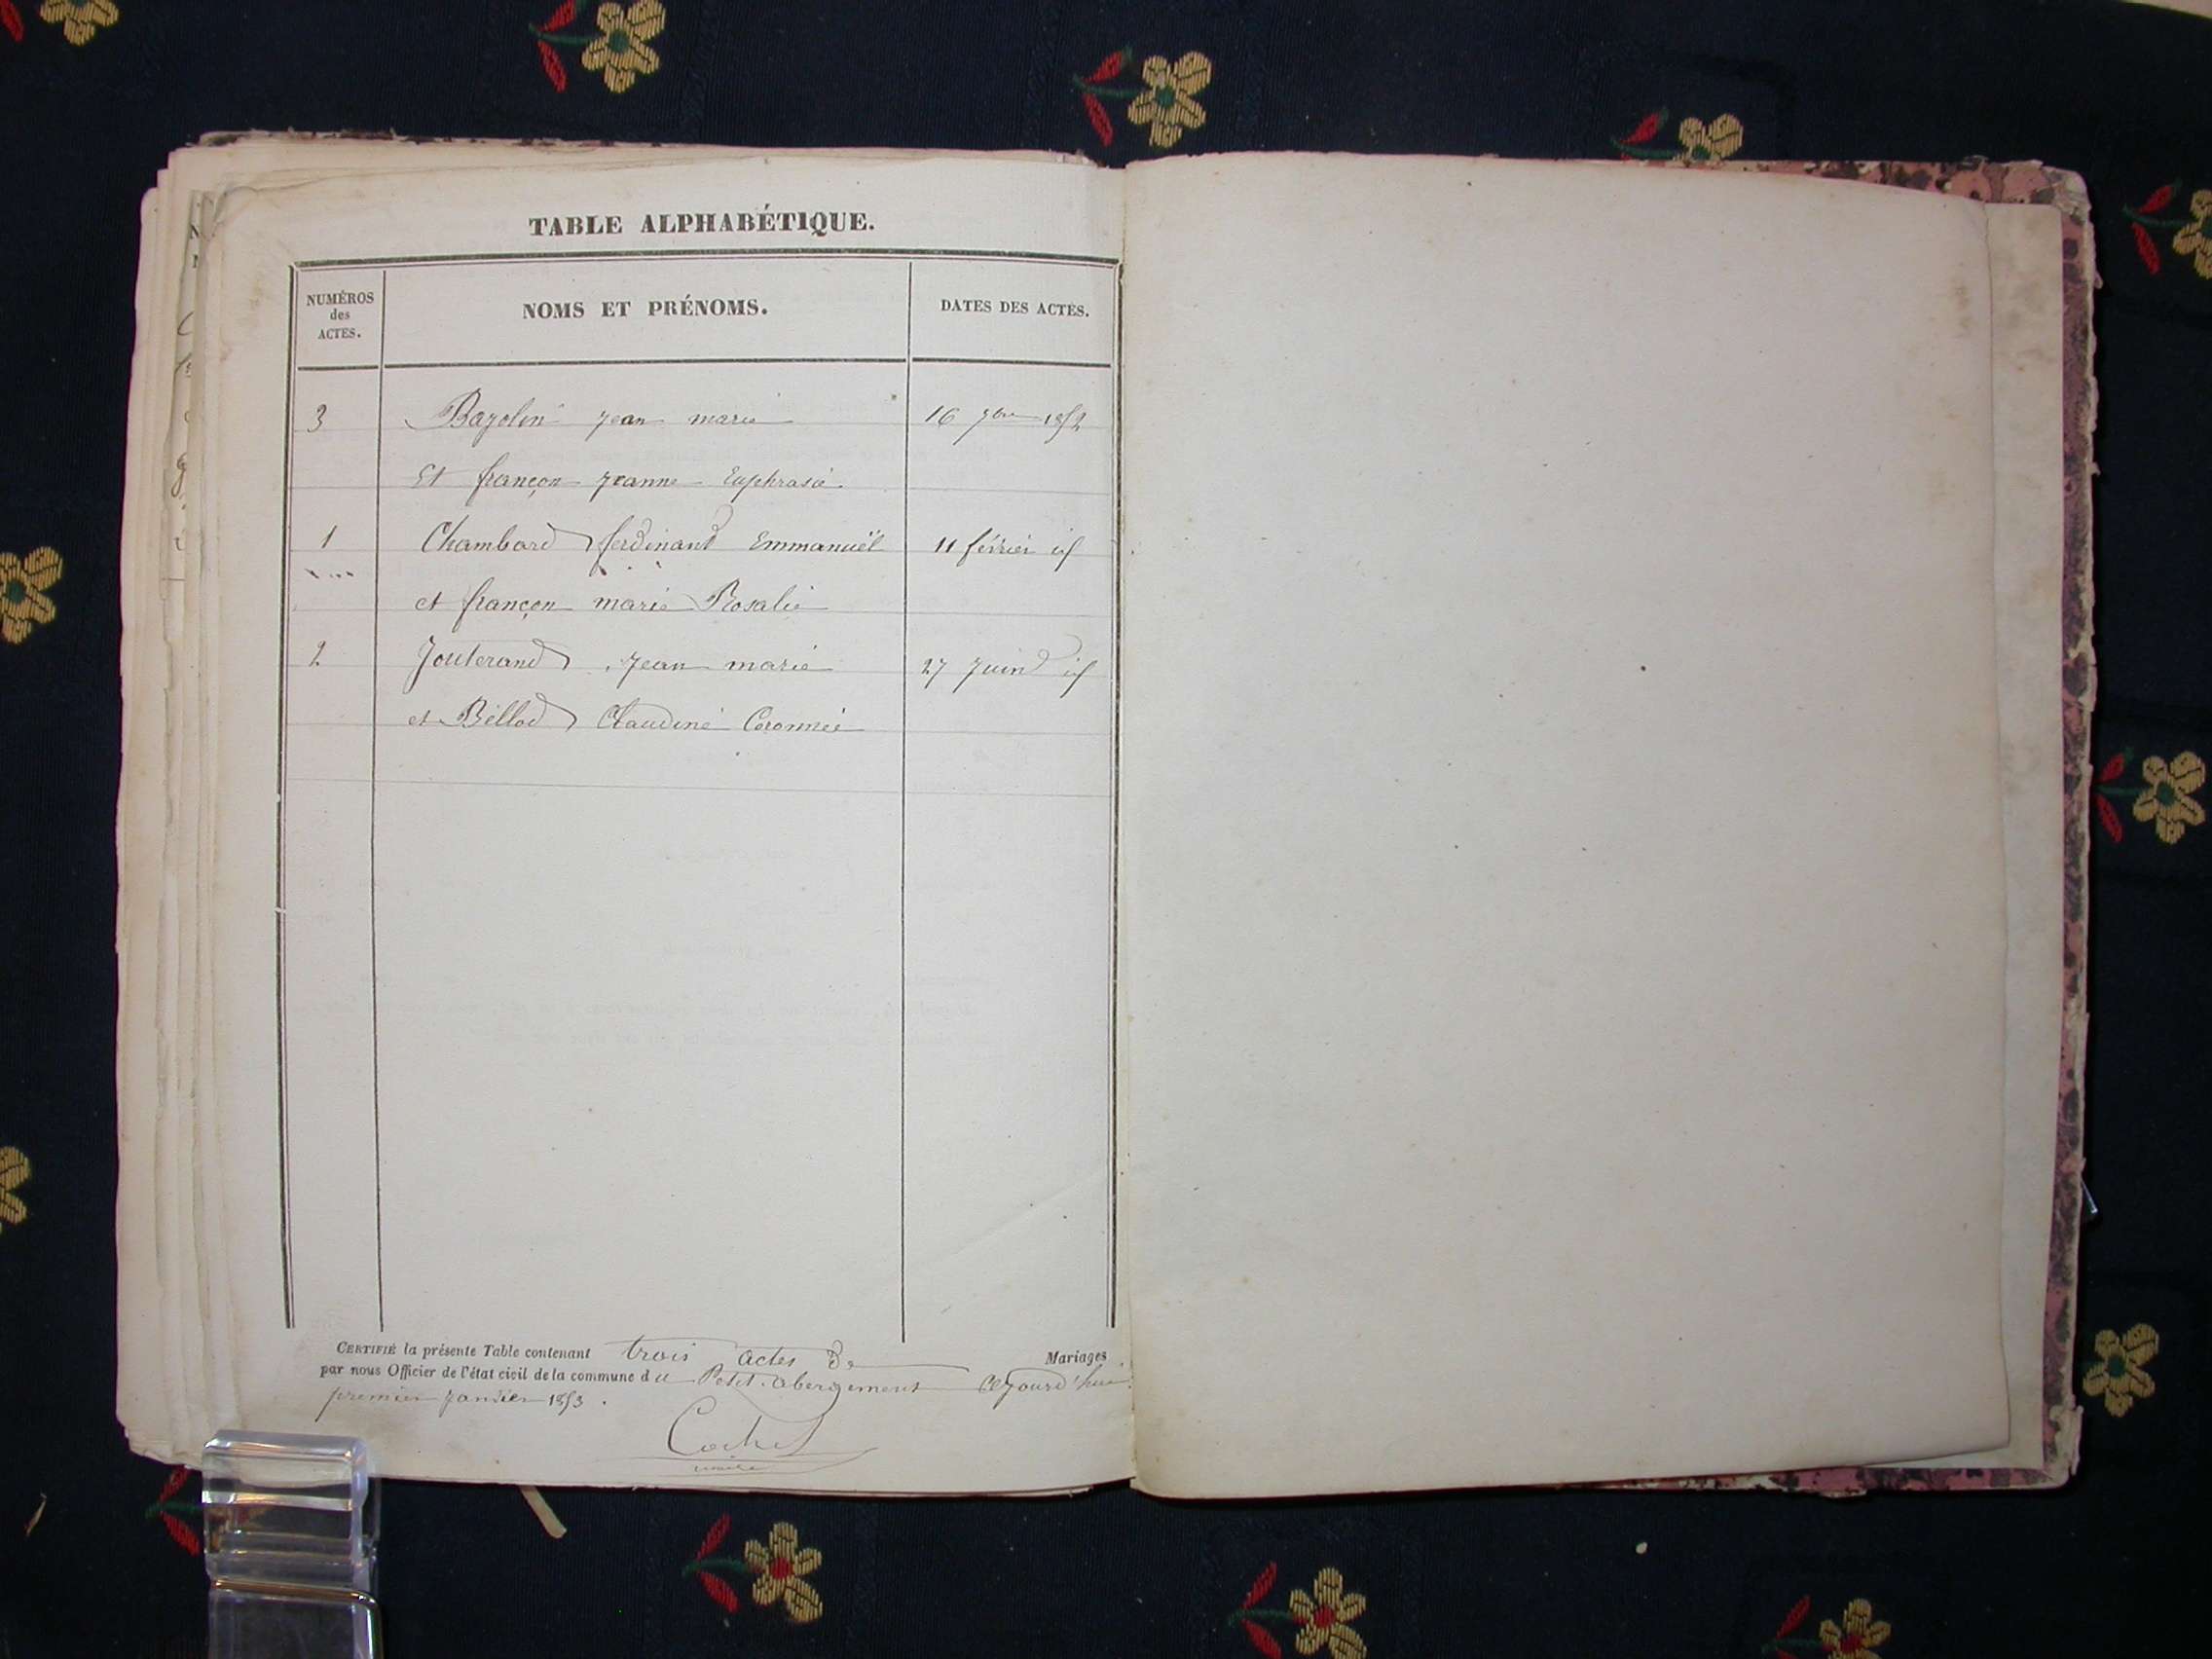 TABLE ALPHABÉTIQUE.
NUMÉROS des ACTES.
NOMS ET PRÉNOMS.
DATES DES ACTES.
3 Bazolin Jean marie 16 7bre 1852
Et françon Jeanne Euphrasie
1 Chambard ferdinand Emmanuël 11 février id
et françon marie Rosalie
2 Jouterand Jean marie 27 Juin id
et Bellod Claudine Coronnée
CERTIFIÉ la présente Table contenant trois actes de Mariages
par nous Officier de l'état civil de la commune du Petit-abergement Cejourd'hui
premier janvier 1853.
Cochet
maire